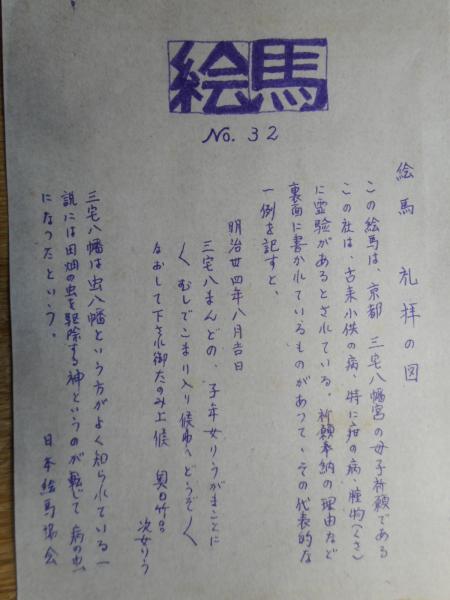 絵馬
No. 32
絵馬 礼拝の図
この絵馬は、京都 三宅八幡宮の母子祈願である
この社は、古来小供の病、特に疳の病、腫物(くさ)
に霊験があるとされている。祈願奉納の理由など
裏面に書かれているものがあって、その代表的な
一例を記すと、
明治廿四年八月吉日
三宅八まんどの、子年女りうがまことに
く むしでこまり入り候間へどうぞく
なおして下され御たのみ上候 奥田竹 
次女りう
三宅八幡は虫八幡という方がよく知られている一
説には田畑の虫を駆除する神というのが転じて病の虫
になったという。
日本絵馬協会